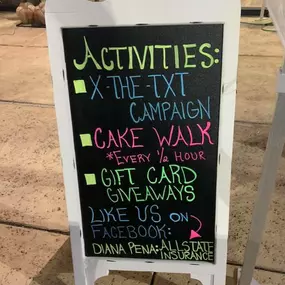 ACTIVITIES:
X-THE-TXT
CAMPAIGN
CAKE WALK
*EVERY 1/2 HOUR
GIFT CARD
GIVEAWAYS
LIKE US ON
FACEBOOK:
DIANA PENA: ALLSTATE
INSURANCE